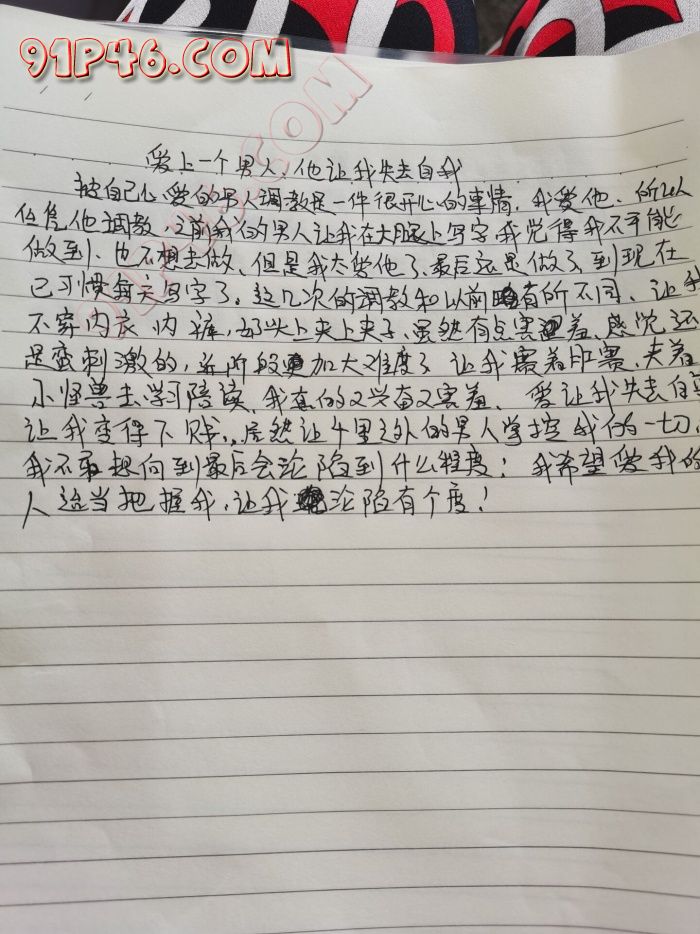 91P46.COM
爱上一个男人，他让我失去自我
被自己心爱的男人调教是一件很开心的事情，我爱他、所以
任凭他调教，之前我的男人让我在大腿上写字我觉得我不可能
做到、也不想去做、但是我太爱他了、最后还是做了、到现在
已习惯每天写字了。这几次的调教和以前有所不同、让我
不穿内衣内裤，奶头上夹上夹子、虽然有点害羞、感觉还
是蛮刺激的，新阶段更加大难度了 让我塞着肛塞、夹着
小怪兽去学习陪读、我真的又兴奋又害羞、爱让我失去自
让我变得下贱，居然让千里之外的男人掌控我的一切、
我不敢想向到最后会沦陷到什么程度！我希望爱我的
人适当把握我，让我沦陷有个度！